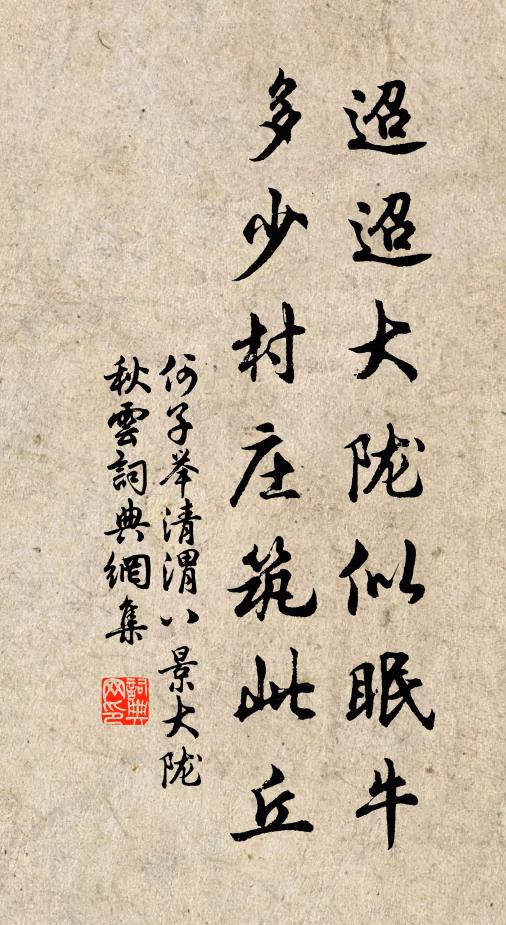 迢迢大陇似眠牛
多少村庄筑此丘
何子举清渭八景大陇
秋雲詞典網集
詞典网印